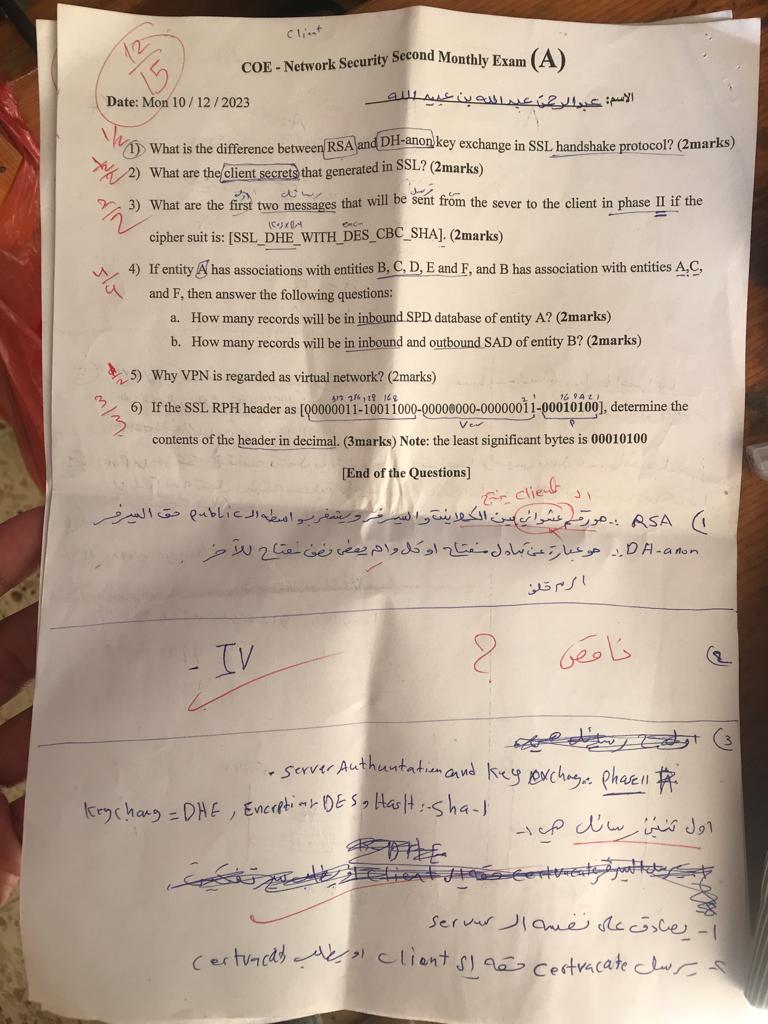 Client
12/15
COE - Network Security Second Monthly Exam (A)
Date: Mon 10 / 12 / 2023
الاسم: عبدالرحمن عبدالله بن عبيدالله
1/2 1) What is the difference between RSA and DH-anon key exchange in SSL handshake protocol? (2marks)
2) What are the client secrets that generated in SSL? (2marks)
2/2 3) What are the first two messages that will be sent from the sever to the client in phase II if the
cipher suit is: [SSL_DHE_WITH_DES_CBC_SHA]. (2marks)
4/4 4) If entity A has associations with entities B, C, D, E and F, and B has association with entities A,C,
and F, then answer the following questions:
a. How many records will be in inbound SPD database of entity A? (2marks)
b. How many records will be in inbound and outbound SAD of entity B? (2marks)
5) Why VPN is regarded as virtual network? (2marks)
3/3 6) If the SSL RPH header as [00000011-10011000-00000000-00000011-00010100], determine the
Ver P
contents of the header in decimal. (3marks) Note: the least significant bytes is 00010100
[End of the Questions]
الـ client
1) RSA :. هو رقم عشوائي بين الكلاينت والسيرفر ويتشفر بواسطه الـ public حق السيرفر
DH-anon :. هو عبارة عن تبادل مفتاح او كل واحد يعطي نص مفتاح للآخر
2) ناقص ? IV -
3)
Phase II :. server Authuntation and key exchang .
Keychang = DHE , Encreption DES , Hash :- Sha-1
اول تنتين رسائل هي :-
DHE
1- يصادق على نفسه الـ server
2- يرسل certvacate حقه الى client او يطلب